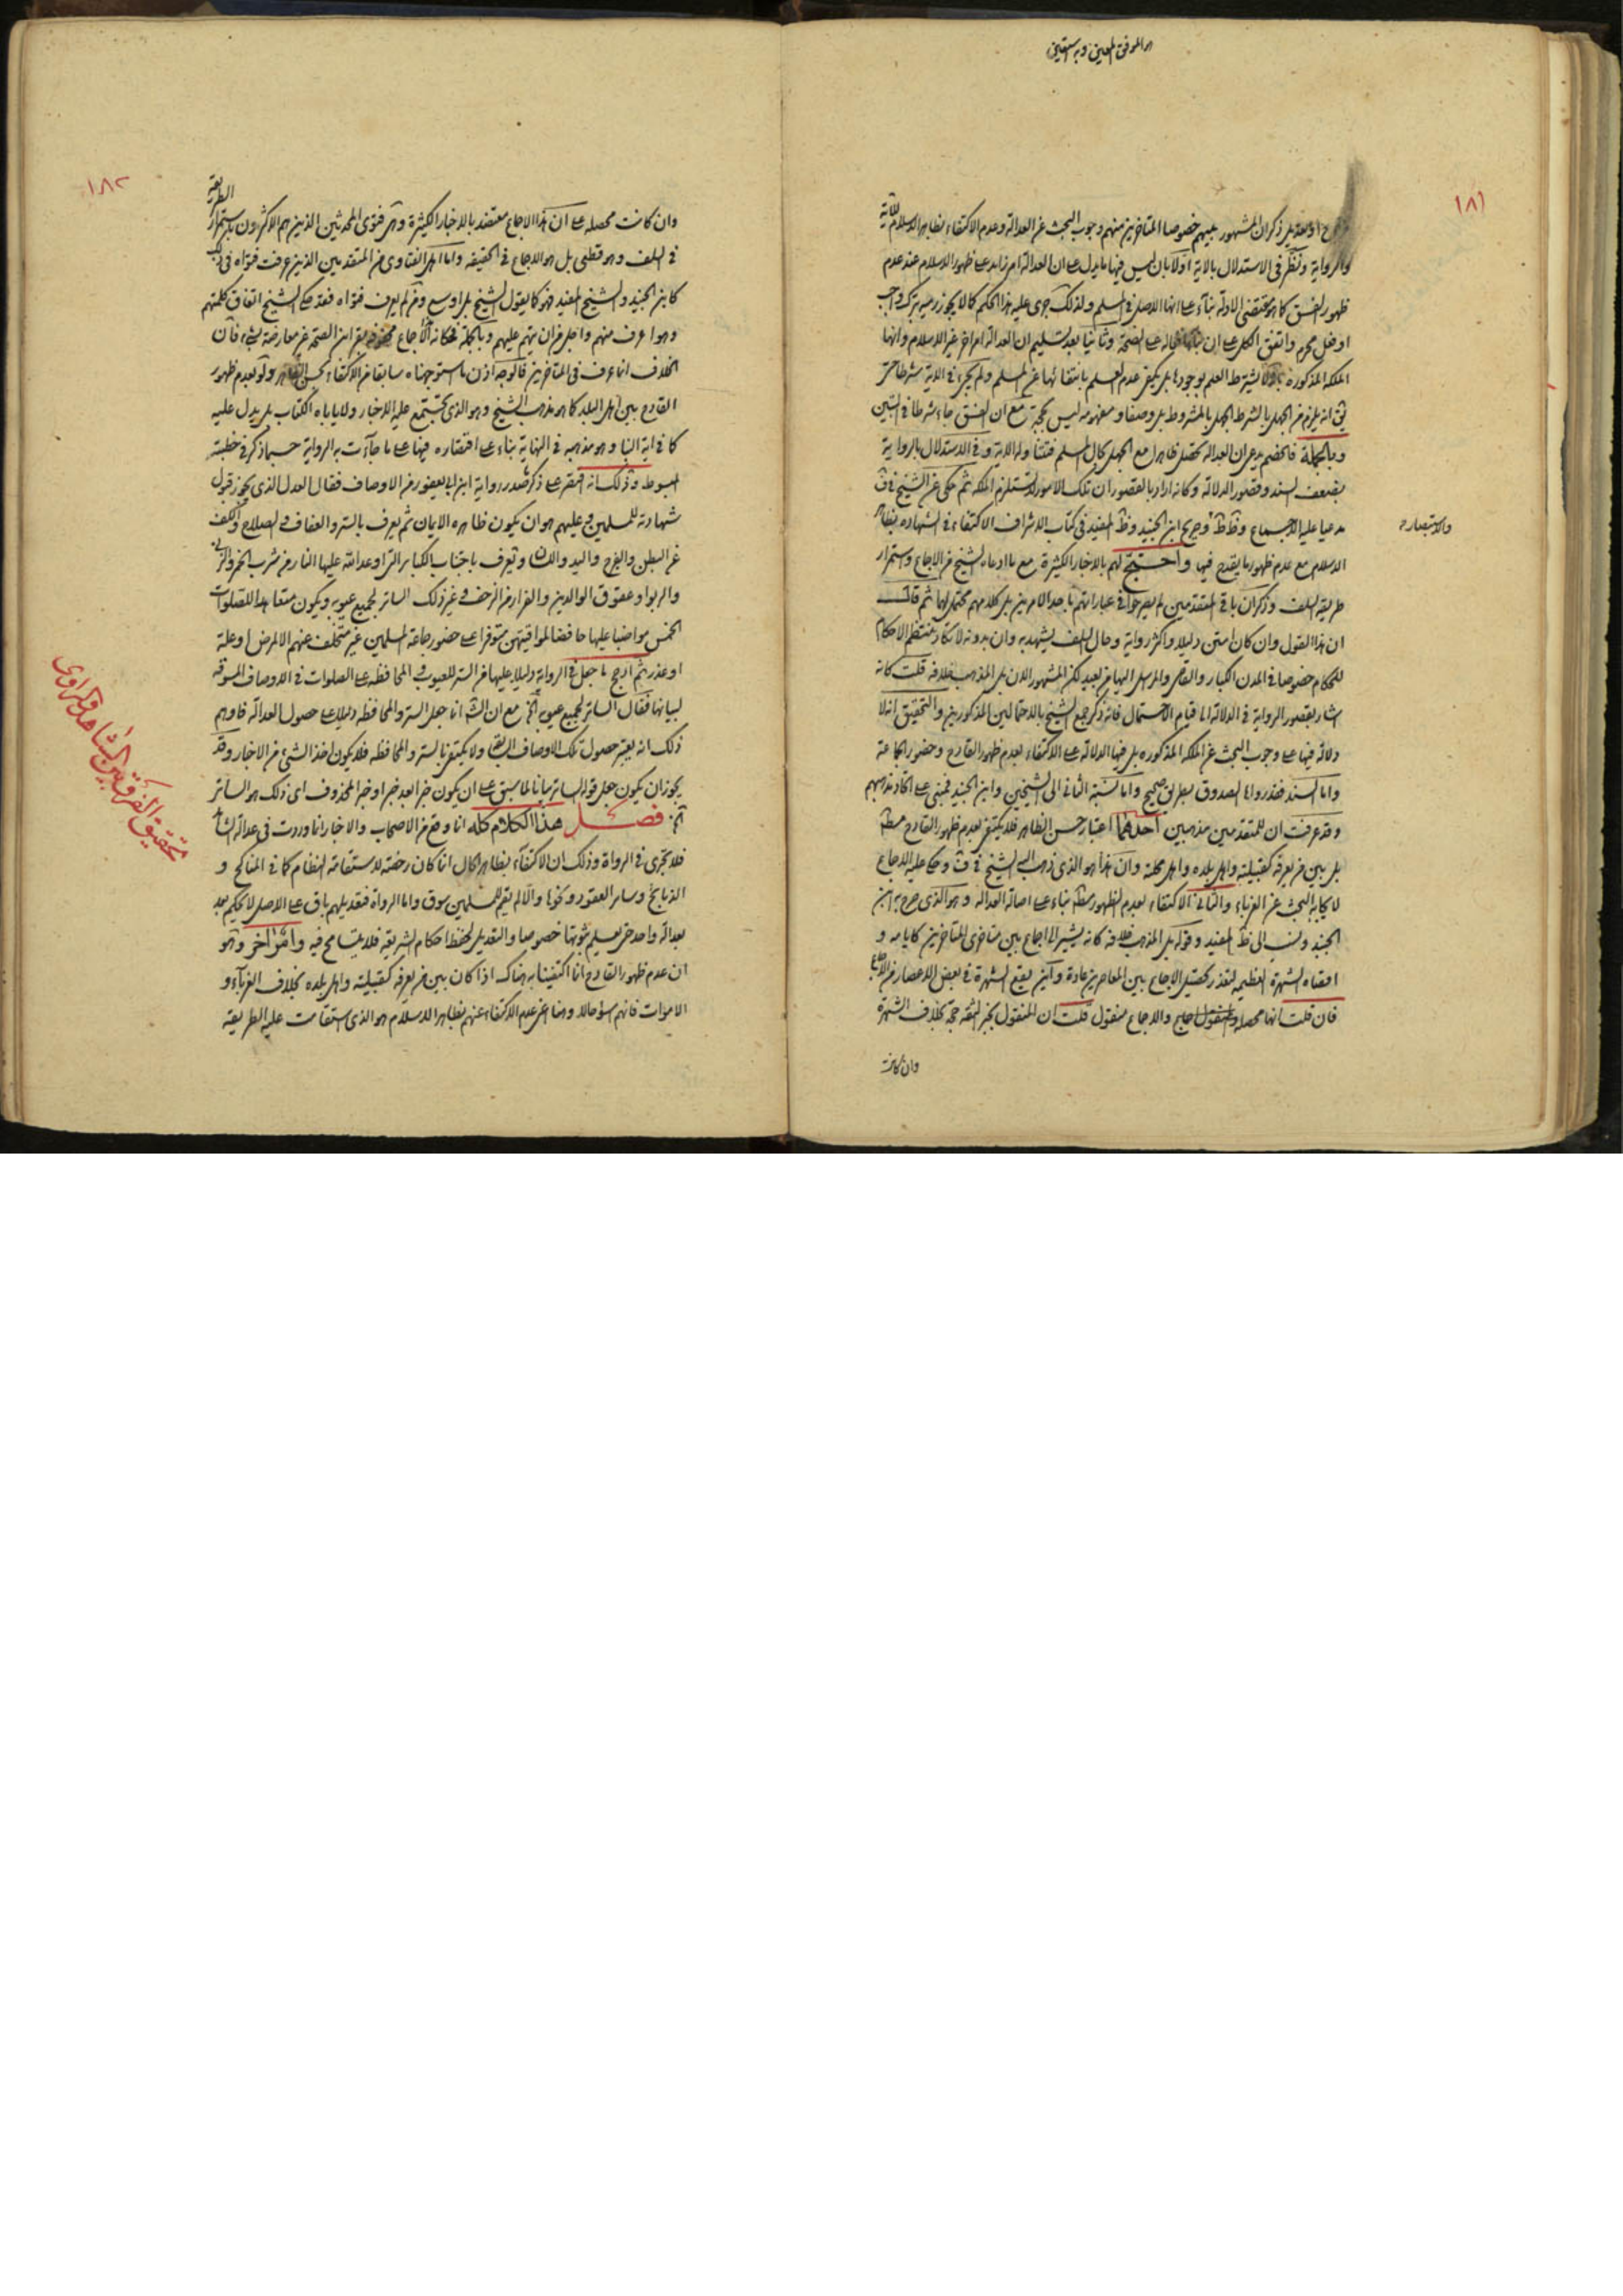 هو الموفق المعين وبه نستعين
١٨١
او بعد بل ذكر ان المشهور بينهم خصوصا المتاخرين منهم وجوب البحث عن العدالة وعدم الاكتفاء بظاهر الاسلام للآية
والرواية ونظر في الاستدلال بالاية اولا بان ليس فيها ما يدل على ان العدالة امر زايد على ظهور الاسلام عند عدم
ظهور الفسق كما هو مقتضى الادلة بناء على انها الاصل في المسلم ولذلك جرى عليه هذا الحكم كما لا يجوز رميه بترك واجب
او فعل محرم واتفق الكل على ان بناء حاله على الصحة وثانيا بعد تسليم ان العدالة امر اخر غير الاسلام وانها
الملكة المذكورة لا يشترط العلم بوجودها بل يكفي عدم العلم بانتفائها عن المسلم ولم يجر في الاية شرطا حتى
يق انه يلزم من الجهل بالشرط الجهل بالمشروط بل وصفا ومفهومه ليس بحجة مع ان الفسق جاء شرطا في التبين
وبالجملة فالخصم يدعي ان العدالة تحصل ظاهرا مع الجهل بحال المسلم فتتناوله الاية وفي الاستدلال بالرواية
بضعف السند وقصور الدلالة وكانه اراد بالقصور ان تلك الامور لا تستلزم الملكة ثم حكى عن الشيخ في ف
مدعيا عليه الاجماع وظ ط وصريح ابن الجنيد وظ المفيد في كتاب الاشراف الاكتفاء في الشهادة بظاهر
والاستبصار
الاسلام مع عدم ظهور ما يقدح فيها واحتج لهم بالاخبار الكثيرة مع ما ادعاه الشيخ من الاجماع واستمرار
طريقة السلف وذكر ان باقي المتقدمين لم يصرحوا في عباراتهم باحد الامرين بل كلامهم محتمل لهما ثم قال
ان هذا القول وان كان امتن دليلا واكثر رواية وحال السلف يشهد به وان بدونه لا تكاد تنتظم الاحكام
للحكام خصوصا في المدن الكبار والقاضي المرسل اليها من بعيد لكن المشهور الان بل المذهب خلافه قلت كانه
اشار بقصور الرواية في الدلالة الى قيام الاحتمال فانه ذكر جمع الشيخ بالاحتمالين المذكورين والتحقيق انه لا
دلالة فيها على وجوب البحث عن الملكة المذكورة بل فيها الدلالة على الاكتفاء بعدم ظهور القادح وحضور الجماعة
واما السند فقد رواها الصدوق بطريق صحيح واما نسبة الثاني الى الشيخين وابن الجنيد فمبني على اتحاد مذهبهم
وقد عرفت ان للمتقدمين مذهبين احدهما اعتبار حسن الظاهر فلا يكتفى بعدم ظهور القادح مطلقا
بل بين من يعرفه كقبيلته واهل بلده واهل محلته وان هذا هو الذي ذهب اليه الشيخ في ف وحكى عليه الاجماع
لايجابه البحث عن الغرباء والثاني الاكتفاء بعدم الظهور مطلقا بناء على اصالة العدالة وهو الذي صرح به ابن
الجنيد ونسب الى ظ المفيد وقوله بل المذهب خلافه كانه يشير الى اجماع بين متاخري المتاخرين كاياسه و
اقصاه الشهرة العظيمة لتعذر تحصيل الاجماع بين المعاصرين عادة واين يقع الشهرة في بعض الاعصار من الاجماع
فان قلت انها محصلة والاجماع منقول قلت ان المنقول بخبر الثقة حجة بخلاف الشهرة
وان كانت
١٨٢
وان كانت محصلة على ان هذا الاجماع معتضد بالاخبار الكثيرة وهي فتوى المحدثين الذين هم الاكثرون باستمرار الطريقة
في السلف وهو قطعي بل هو الاجماع في الحقيقة واما اهل الفتاوى من المتقدمين الذين عرفت فتواه في ذلك
كابن الجنيد والشيخ المفيد فهو كما يقول الشيخ بل اوسع ومن لم يعرف فتواه فقد حكى الشيخ اتفاق كلمتهم
وهو اعرف منهم واجل من ان يتهم عليهم وبالجملة فحكاية الاجماع محفوفة بقراين الصحة غير معارضة بشيء فان
الخلاف انما عرف في المتاخرين فالوجه اذن ما استوجهناه سابقا من الاكتفاء بحسن الظاهر ولو بعدم ظهور
القادح بين اهل البلد كما هو مذهب الشيخ وهو الذي تجتمع عليه الاخبار ولا ياباه الكتاب بل يدل عليه
كما في اية النبا وهو مذهبه في النهاية بناء على اقتصاره فيها على ما جاءت به الرواية حسبما ذكر في خطبة
المبسوط وذلك انه اقتصر على ذكر صدر رواية ابن ابي يعفور من الاوصاف فقال العدل الذي يجوز قبول
شهادته للمسلمين وعليهم هو ان يكون ظاهره الايمان ثم يعرف بالستر والعفاف والصلاح والكف
عن البطن والفرج واليد واللسان ويعرف باجتناب الكباير التي اوعد الله عليها النار من شرب الخمر والزنا
والربوا وعقوق الوالدين والفرار من الزحف وغير ذلك الساتر لجميع عيوبه ويكون متعاهدا للصلوات
الخمس مواضبا عليها حافظا لمواقيتهن متوفرا على حضور جماعة المسلمين غير متخلف عنهم الا لمرض او علة
او عذر ثم ادرج ما جعل في الرواية دليلا عليها من الستر للعيوب والمحافظة على الصلوات في الاوصاف المسوقة
لبيانها فقال الساتر لجميع عيوبه الخ مع ان الشارع انما جعل الستر والمحافظة دليلا على حصول العدالة فاوهم
ذلك انه يعتبر حصول تلك الاوصاف السابقة ولا يكتفى بالستر والمحافظة فلا يكون اخذ الشيء من الاخبار وقد
يجوز ان يكون جعل قوله الساتر بيانا لما سبق على ان يكون خبرا بعد خبر او خبر المحذوف اي ذلك هو الساتر
الخ فصل هذا الكلام كله انما وقع من الاصحاب والاخبار انما وردت في عدالة الشاهد
فلا يجري في الرواة وذلك ان الاكتفاء بظاهر الحال انما كان رخصة لاستقامة النظام كما في المناكح و
الذبايح وساير العقود ونحوها والا لم يقم للمسلمين سوق واما الرواة فتعديلهم باق على الاصل لا نحكم
بعدالة واحد حتى يعلم ثبوتها خصوصا والتعديل لحفظ احكام الشريعة فلا يتسامح فيه وامر اخر وهو
ان عدم ظهور القادح انما اكتفينا به هناك اذا كان بين من يعرفه كقبيلته واهل بلده بخلاف الغرباء و
الاموات فانهم اسؤ حالا وهنا اغرب عدم الاكتفاء عنهم بظاهر الاسلام هو الذي استقامت عليه الطريقة
تحقيق الفرق بين الشاهد والراوى